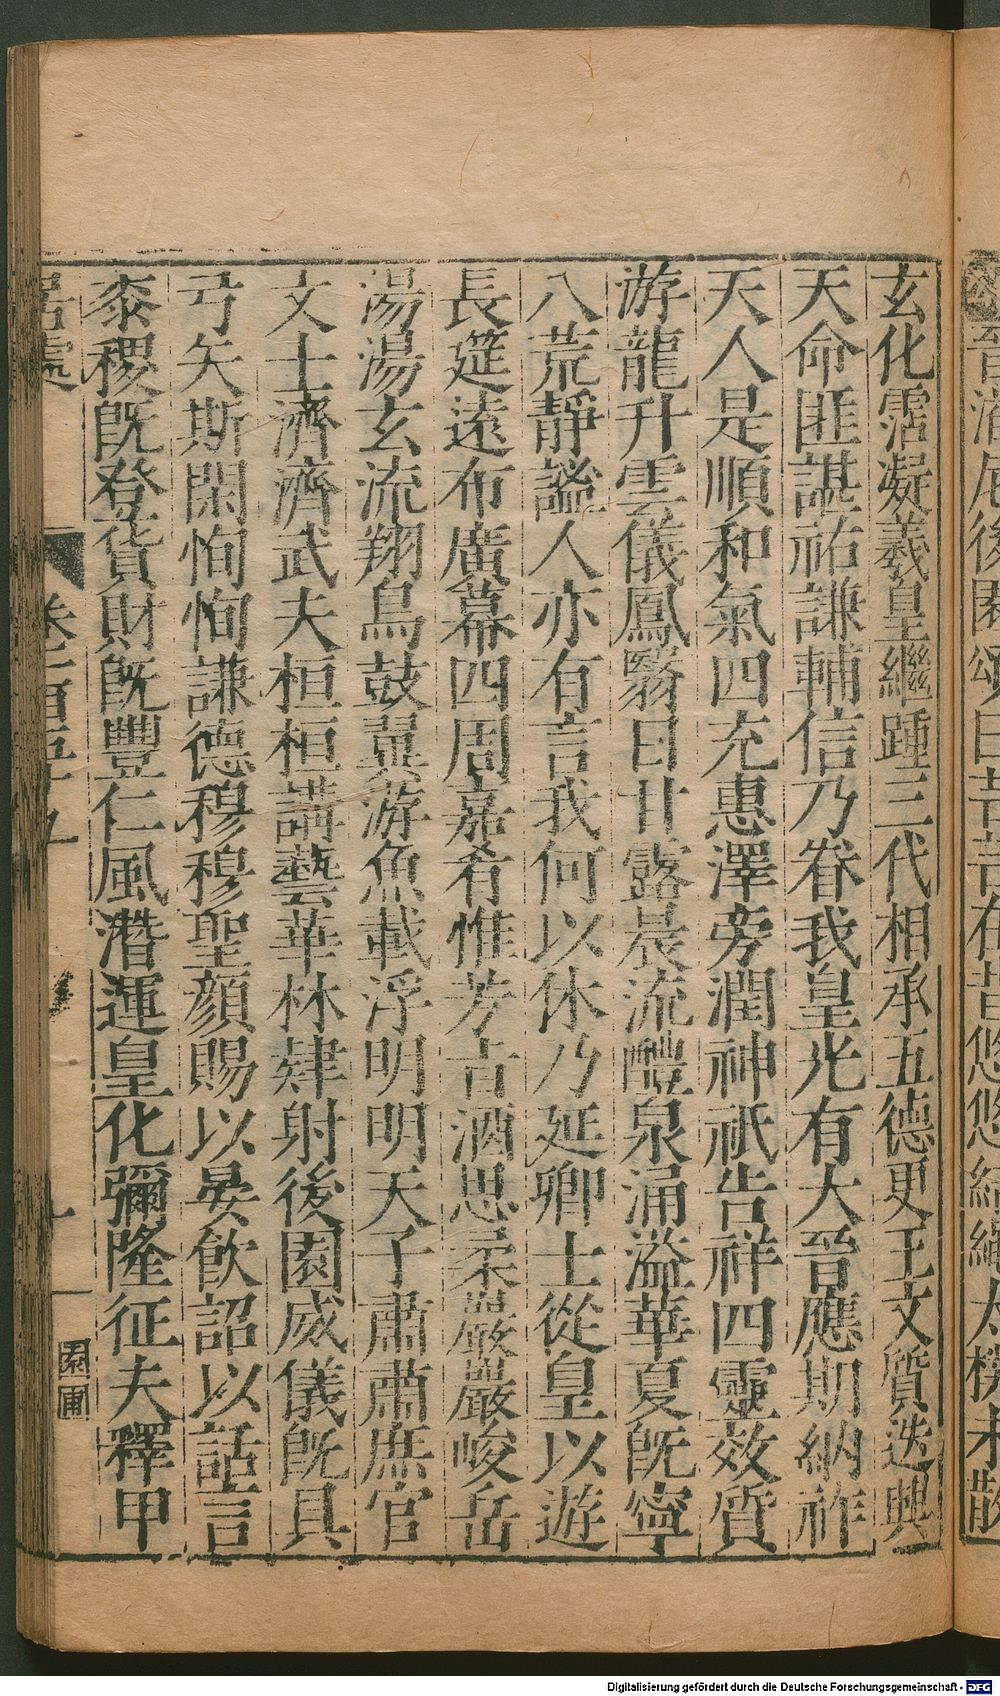 頌晉潘尼後園頌曰芒芒在昔悠悠結繩太樸未散
玄化霑凝羲皇繼踵三代相承五德更王文質迭興
天命匪諶祐謙輔信乃眷我皇光有大晉應期納祚
天人是順和氣四充惠澤旁潤神祇告祥四靈效質
游龍升雲儀鳳翳日甘露晨流醴泉涌溢華夏旣寧
八荒靜謐人亦有言我何以休乃延卿士從皇以遊
長筵遠布廣幕四周嘉肴惟芳古酒思柔嚴嚴峻岳
湯湯玄流翔鳥鼓翼游魚載浮明明天子肅肅庶官
文士濟濟武夫桓桓講藝華林肄射後園威儀旣具
弓矢斯閑恂恂謙德穆穆聖顏賜以晏飮詔以話言
黍稷旣登貨財旣豐仁風潛運皇化彌隆征夫釋甲
居處
園圃
Digitalisierung gefördert durch die Deutsche Forschungsgemeinschaft - DFG